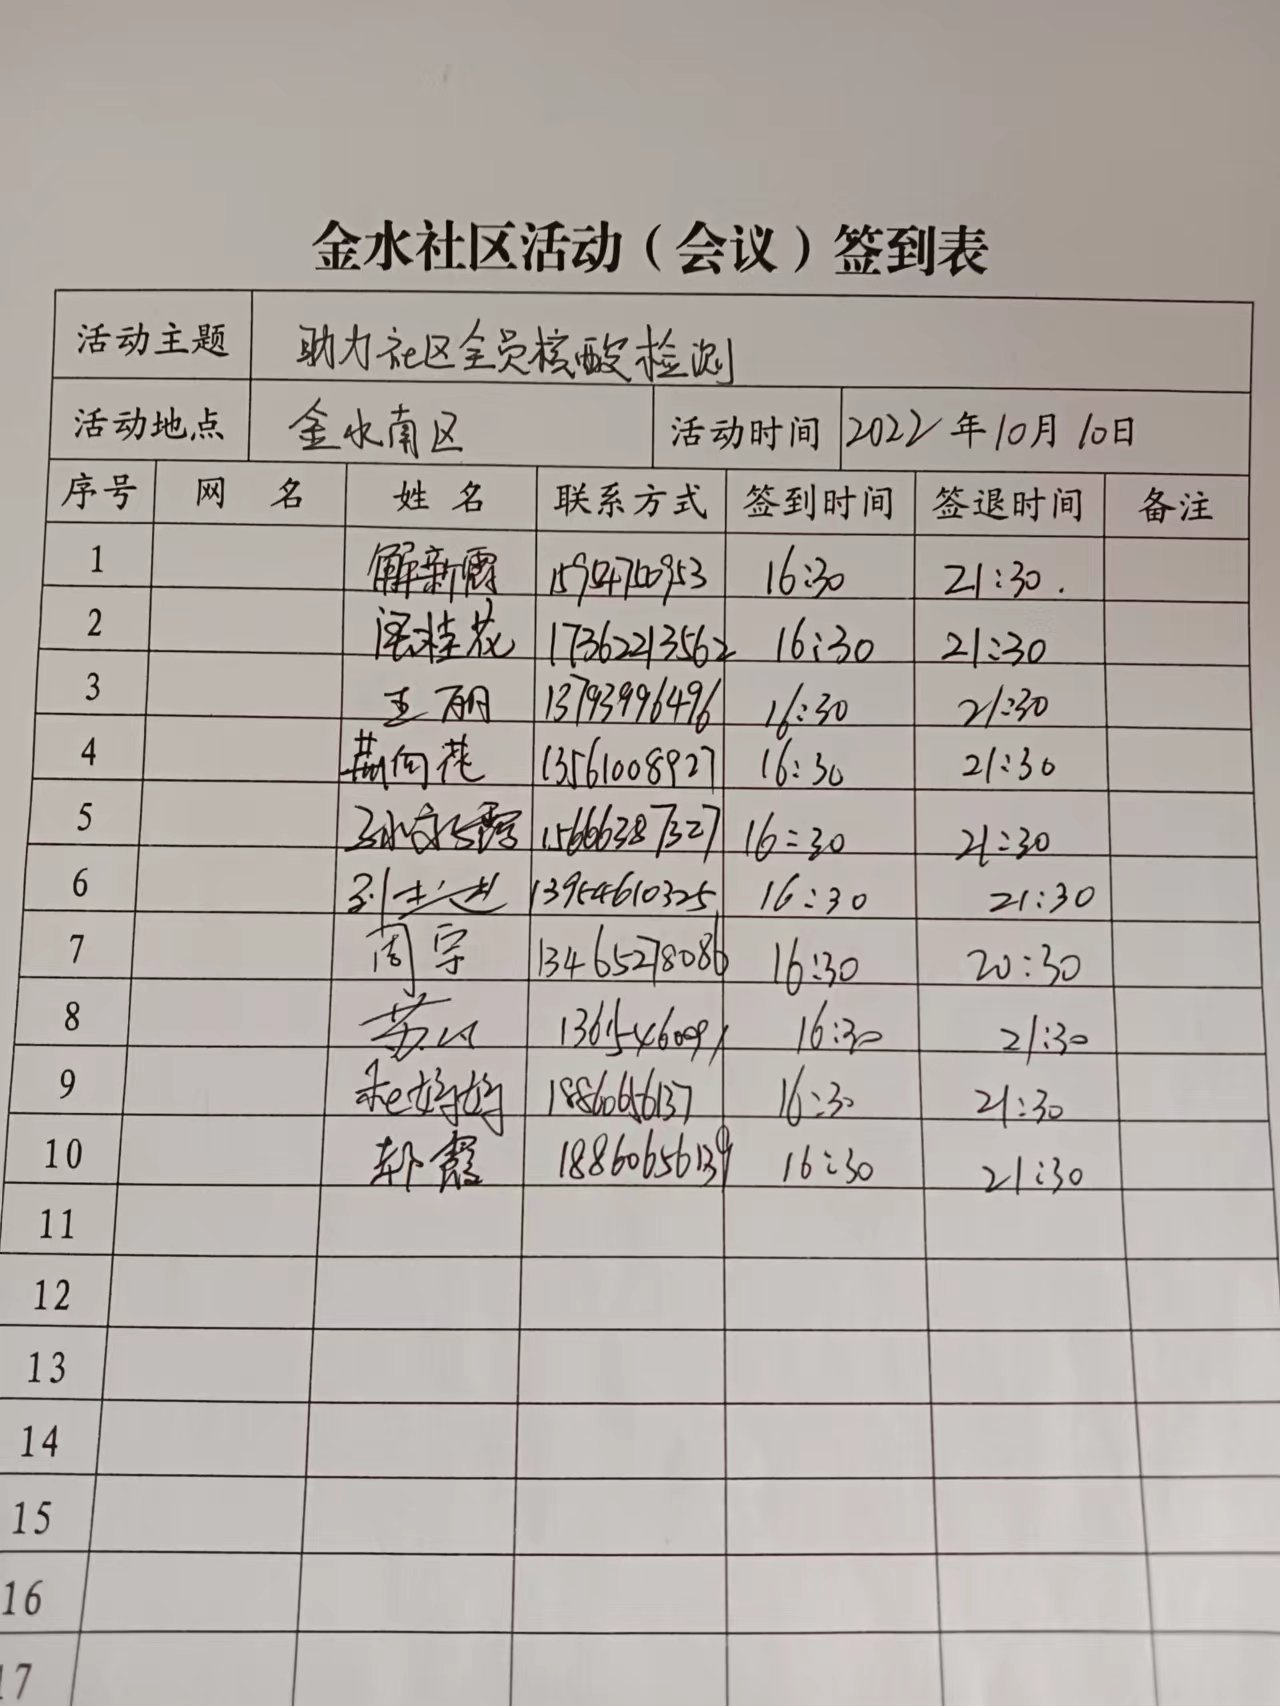 金水社区活动（会议）签到表
活动主题 助力社区全员核酸检测
活动地点 金水南区 活动时间 2022年10月10日
序号 网 名 姓 名 联系方式 签到时间 签退时间 备注
1 解新霞 15954700953 16:30 21:30.
2 桂花 17362213562 16:30 21:30
3 王丽 13793996496 16:30 21:30
4 荆向花 13561008927 16:30 21:30
5 15666387327 16:30 21:30
6 刘 13954610325 16:30 21:30
7 周宇 13465278086 16:30 20:30
8 苏 16:30 21:30
9 婷婷 18860656137 16:30 21:30
10 霞 18860656139 16:30 21:30
11
12
13
14
15
16
17